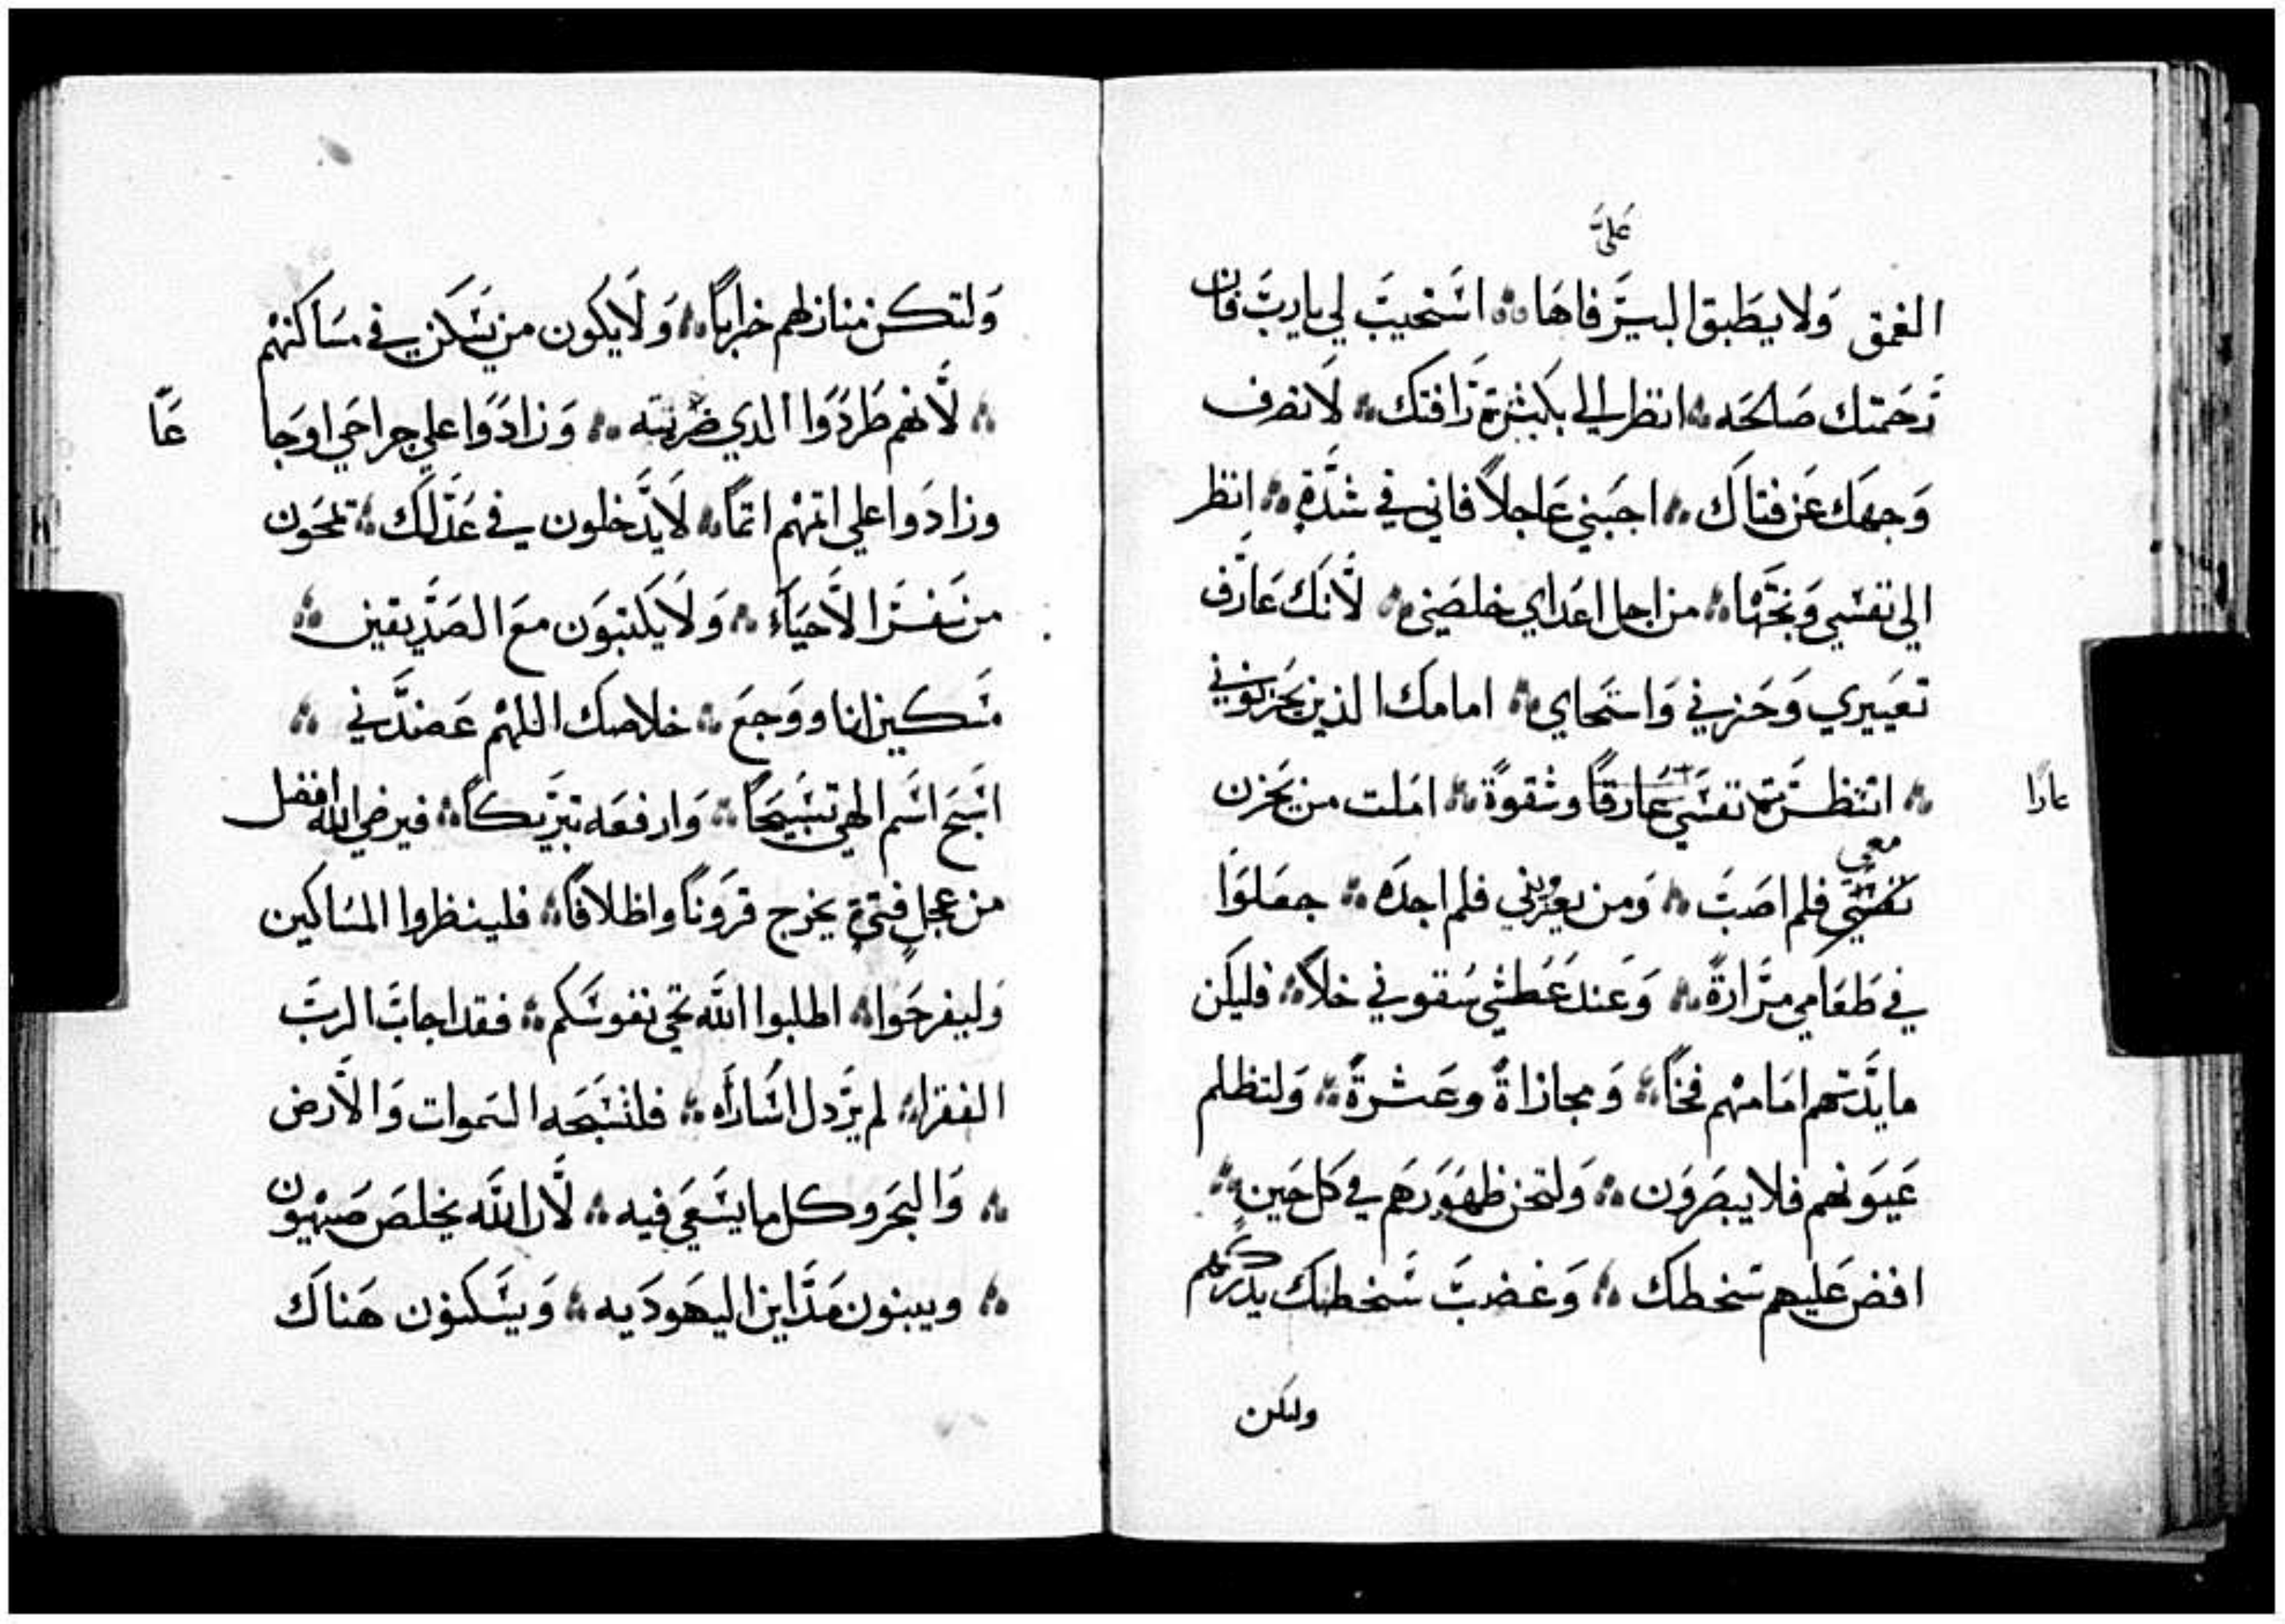 عليَّ
الغمق وَلا يطَبق البيَر فاهَا ∴ اسَتجيبَ لي يارَبَّ فان
رَحَمتك صَالحَه ∴ انظر الي بكَثرة رَافتك ∴ لاَ تصَرف
وَجهَك عَن فتاكَ ∴ اجبَني عَاجلاً فاني في شدَّةٍ ∴ انظر
الي نفسَي وَنجّهَا ∴ من اجل اعَداي خلصَني ∴ لَّانكَ عَارَف
تعَييري وَخَزيي وَاستَحاي ∴ امامكَ الذين يَحَزنوني
∴ انتظرَت نفسَي عَارقاً وشقوةً ∴ امَلت من يَحَزن
عارًا
معي
نفسَي فلم اصَبَ ∴ وَمن يعزيني فلم اجدَه ∴ جعَلوَا
في طَعَامي مرَّارةً ∴ وَعَندَ عَطشي سَقوني خلاً ∴ فليكَن
مايَّدتهم امَامهْم فخًا ∴ وَمجازاةً وعَثرةً ∴ وَلتظلم
عَيَونهم فلا يبصَروَن ∴ وَلتحَن ظهَوَرَهَم في كل حَين ∴
افض عَليهم سَخطك ∴ وَغضبَ سَخطك يدَركَهم
ولتكن
وَلتكن منازلهم خراباً ∴ وَلَا يكون من يسَكَن في مسَاكنهْم
∴ لَّانهم طَردَوَا الدي ضَربته ∴ وَزادَوَا علي جراحَي اوَجا
عًا
وزادَوا علي اثمهْم اثمًا ∴ لاَ يدَخلون في عَدَلكَ ∴ يمحَون
من سَفر الاَحَيَاءِ ∴ وَلاَ يكَتبوَن معَ الصَدَّيقين ∴
مسَكين انا ووَجعَ ∴ خلاصك اللهْم عَضدَّني ∴
اسَبَح اسَم الهي تسَبيَحًا ∴ وَارفعَه تبرَيكاً ∴ فيرضي الله افضل
من عجلٍ فتيٍ يخرج قرَوَناً واظلافًا ∴ فلينظروا المسَاكين
وَليفرحَوا ∴ اطلبوا الله تحَي نفوسَكم ∴ فقد اجابَ الربَّ
الفقرا ∴ لم يرَّدل اسَارَاه ∴ فلتسَبَحَه السَموات وَالاَّرض
∴ وَالبحَر وكل ما يسَعَي فيه ∴ لَّان الله يخلصَ صَهيون
∴ ويبنون مَدَاين اليهَودَيه ∴ وَيسَكنوَن هَناكَ